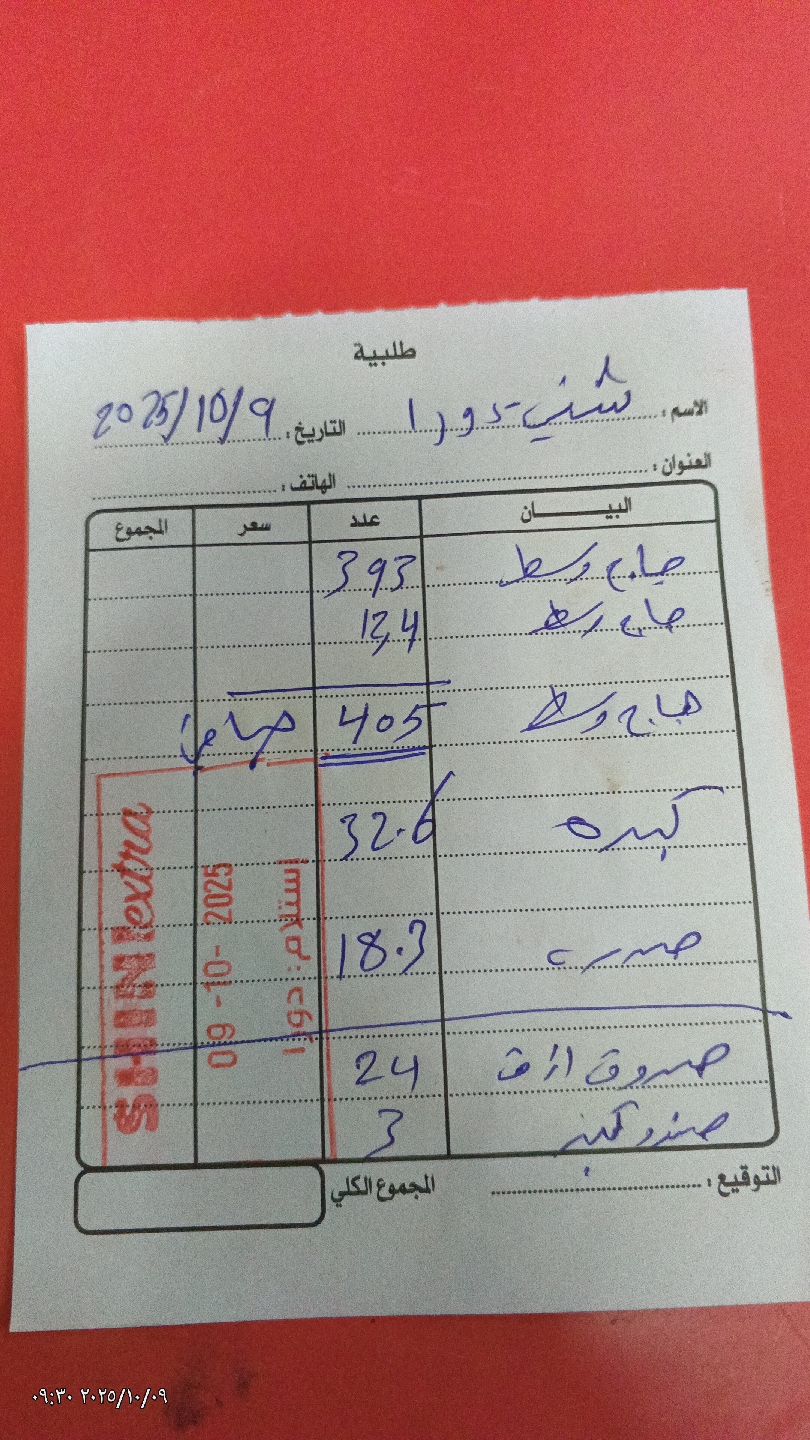 طلبية
الاسم: شني دورا التاريخ: 2025/10/9
العنوان: الهاتف:
البيــــــان عدد سعر المجموع
جاج وسط 393
جاج وسط 12,4
جاج وسط 405 صافي
كبده 32.6
صدر 18.3
صندوق ازرق 24
صندوق 3
التوقيع: المجموع الكلي
SHINI extra
09-10-2025
إستلام: دورا
٠٩:٣٠ ٢٠٢٥/١٠/٠٩